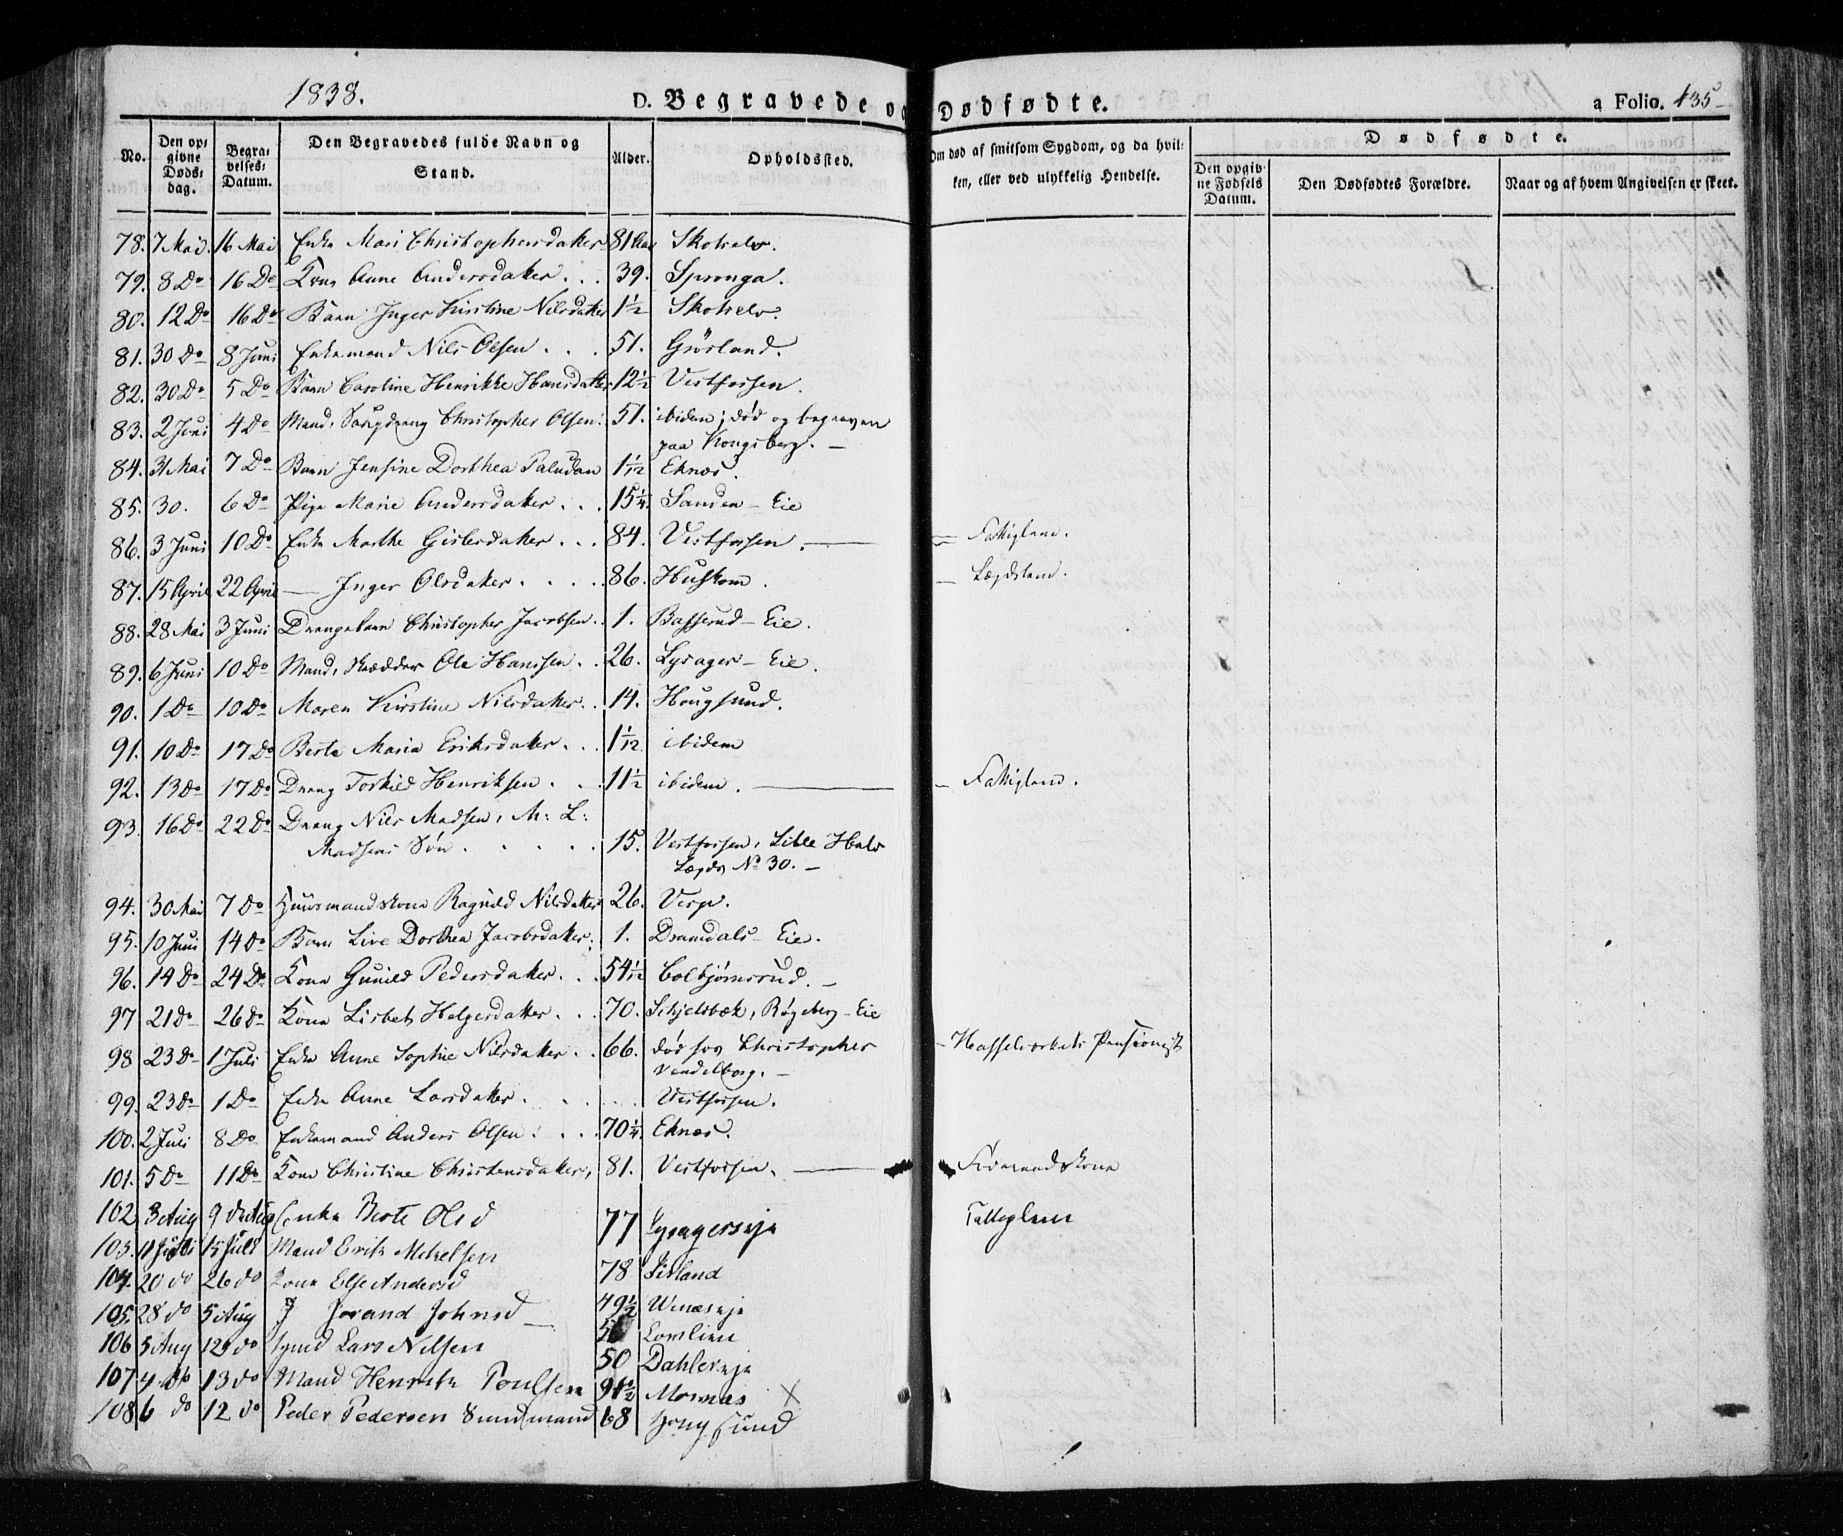 1838.
D. Begravede og Dødfødte.
a Folio. 435
No.
Den opgivne Dødsdag.
Begravelses-Datum.
Den Begravedes fulde Navn og Stand.
Alder.
Opholdssted.
Om død af smitsom Sygdom, og da hvilken, eller ved ulykkelig Hendelse.
Dødfødte.
Den opgivne Fødsels Datum.
Den Dødfødtes Forældre.
Naar og af hvem Angivelsen er skeet.
78. 7 Mai. 16 Mai Enke Mari Christophersdatter 81 Skotselv.
79. 8 Do 16 Do Kone Anne Andersdatter . . . 39. Spronga.
80. 12 Do 16 Do Barn Inger Kirstine Nilsdatter 1½ Skotselv.
81. 30 Do 8 Juni Enkemand Nils Olsen . . . 51. Grøsland.
82. 30 Do 5 Do Barn Caroline Henrikke Hansdatter 12½ Vestfossen.
83. 2 Juni 4 Do Mand, Christopher Olsen. 51. ibidem; død og begraven
paa Kongsberg. –
84. 31 Mai 7 Do Barn Jensine Dorthea Paludan 1 1/12 Eknes.
85. 30. 6 Do Pige Marie Andersdatter . . . 15¼ Sanden – Eie
86. 3 Juni 10 Do Enke Marthe Gislesdatter . . . 84. Vestfossen. — Fattiglem.
87. 15 April 22 April — Inger Olsdatter . . . . 86. Huskom. – Lægdslem.
88. 28 Mai 3 Juni Drengebarn Christopher Jacobsen. . 1. Basserud – Eie.
89. 6 Juni 10 Do Mand, Skrædder Ole Hanssen. . . 26. Lysager – Eie.
90. 1 Do 10 Do Maren Kirstine Nilsdatter. . 14. Hougsund.
91. 10 Do 17 Do Berte Maria Eriksdatter. . . 1 1/12 ibidem
92. 13 Do 17 Do Dreng Torkild Henriksen . . . 11½ ibidem. — Fattiglem.
93. 16 Do 22 Do Dreng Nils Madsen, M: L:
Madsens Søn . . . . . 15. Vestfossen, Lille Hals
Lægds No 30. –
94. 30 Mai 7 Do Huusmandskone Ragnild Nilsdatter 26. Verp.
95. 10 Juni 14 Do Barn Live Dorthea Jacobsdatter. 1. Dramdals – Eie.
96. 14 Do 24 Do Kone Gunild Pedersdatter. . . 54 1/12 Colbjørnsrud. –
97 21 Do 26 Do Kone Lisbet Helgesdatter . . . 70. Schjelsbæk, Røgeberg – Eie
98 23 Do 1 Juli Enke Anne Sophie Nilsdatter . . 66. død hos Christopher – Hasselverkets Pensionist
Vendelborg. –
99. 23 Do 1 Do Enke Anne Larsdatter. . . . . Vestfossen.
100. 2 Juli 8 Do Enkemand Anders Olsen. . . . 70¼ Eknes.
101. 5 Do 11 Do Kone Christine Christensdatter, 81. Vestfossen. —
102. 3 Aug 9 do Aug Enke Berte Olsd 77 Lysagerseje Fattiglem
103. 11 Juli 15 Juli Mand Erik Mikelsen
104. 20 do 26 do Kone Else Andersd 78 Sirland
105. 28 do 5 Aug Jorand Johnsd — 49½ Wenæseje
106 5 Aug 12 do Lars Nilsen Lomlien
107 4 do 13 do Mand Henrik Poulsen 50 Dahlereje
108 6 do 12 do Peder Pedersen 91½ Mornæs X
68 Hougsund